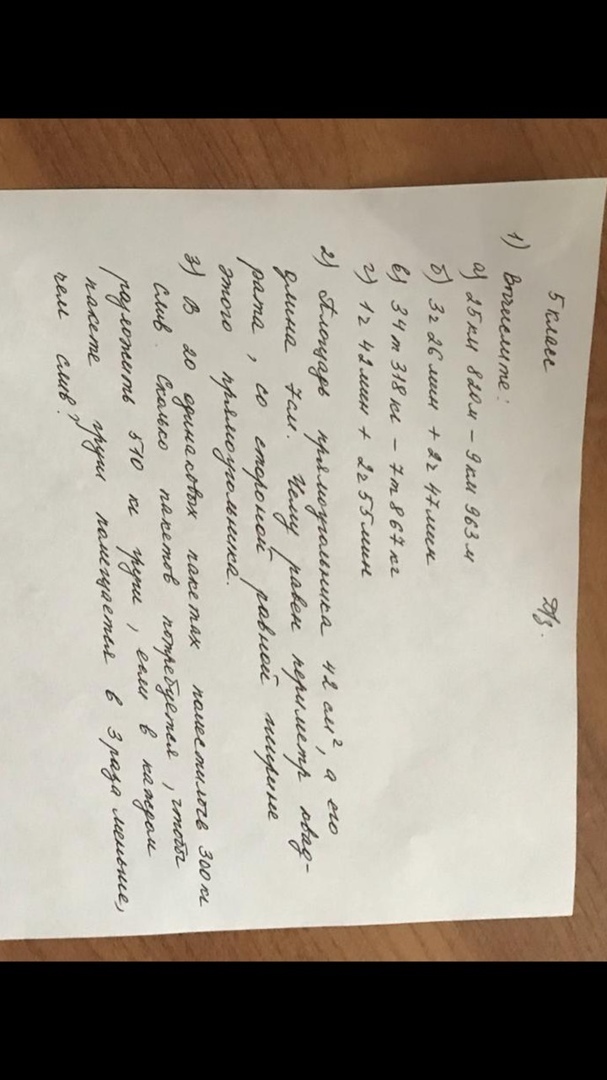 5 класс
Д/з.
1) Вычислите:
а) 25 км 820 м – 9 км 963 м
б) 3ч 26 мин + 2ч 47 мин
в) 34 т 318 кг – 7 т 867 кг
г) 1ч 42 мин + 2ч 55 мин
2) Площадь прямоугольника 42 см², а его
длина 7 см. Чему равен периметр квад-
рата, со стороной равной ширине
этого прямоугольника.
3) В 20 одинаковых пакетах поместилось 300 кг
слив. Сколько пакетов потребуется, чтобы
разложить 510 кг груш, если в каждом
пакете груш помещается в 3 раза меньше,
чем слив?